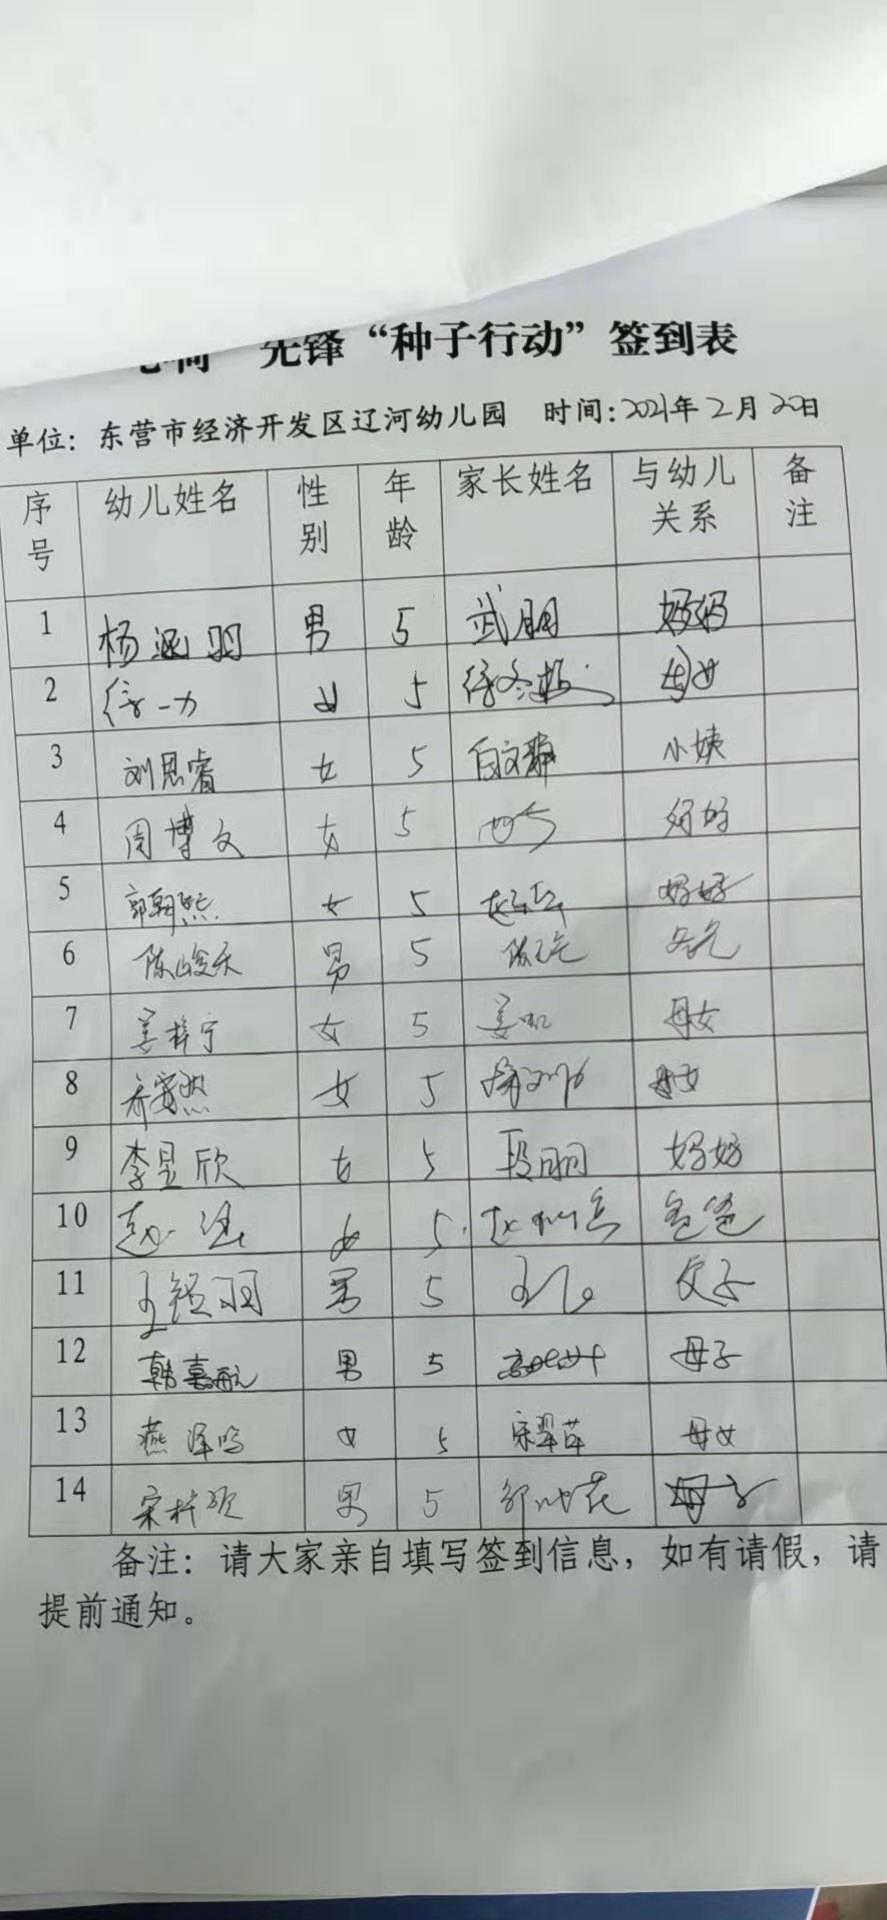 先锋“种子行动”签到表
单位：东营市经济开发区辽河幼儿园 时间：2021年2月20日
序号 幼儿姓名 性别 年龄 家长姓名 与幼儿关系 备注
1 杨涵羽 男 5 武丽 妈妈
2 徐一力 女 5 母女
3 刘思睿 女 5 白文静 小姨
4 周博文 女 5 妈妈
5 郭朝熙 女 5 妈妈
6 陈峻天 男 5
7 姜梓宁 女 5 姜 母女
8 乔 女 5 母女
9 李昱欣 女 5 段丽丽 妈妈
10 赵一涵 女 5 赵 爸爸
11 王锐羽 男 5 父子
12 韩嘉航 男 5 母子
13 燕泽鸣 女 5 宋翠萍 母女
14 宋 男 5 花 母子
备注：请大家亲自填写签到信息，如有请假，请
提前通知。